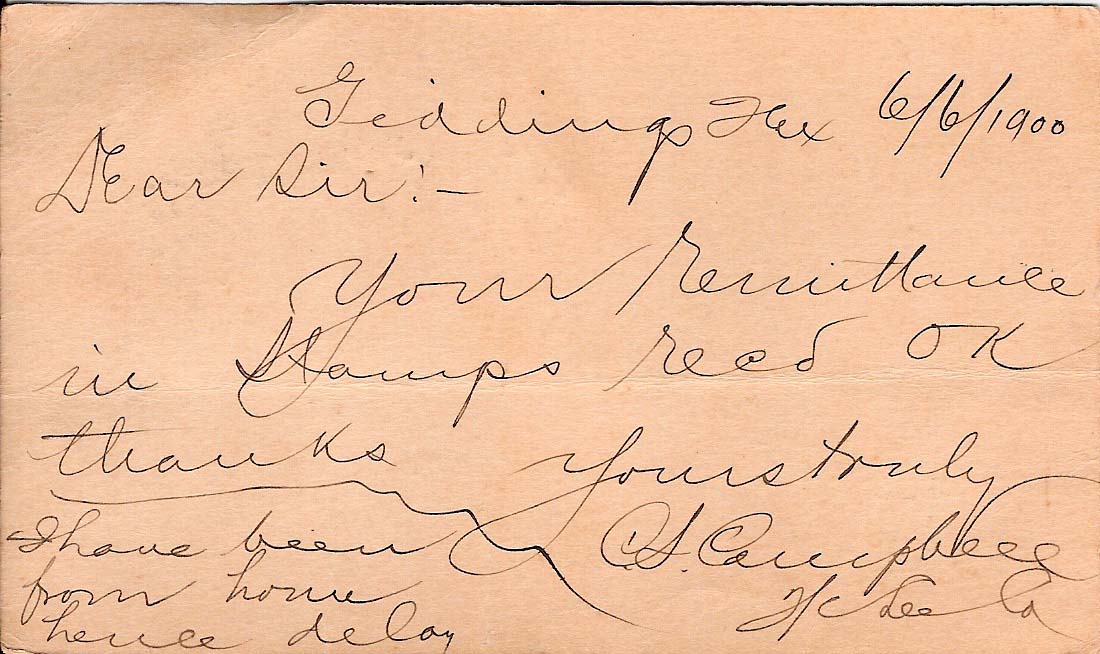 Giddings Tex 6/6/1900
Dear Sir:-
Your Remittance
in Stamps recd OK
thanks Yours truly
C.S. Campbell
Lee Co
I have been
from home
hence delay